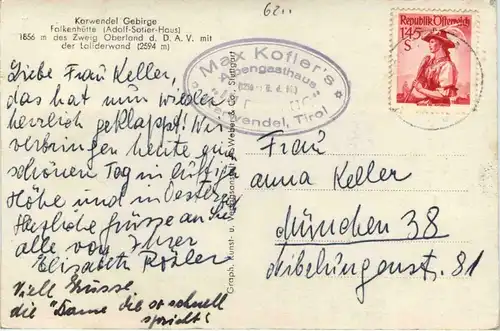 Karwendel Gebirge
Falkenhütte (Adolf-Sotier-Haus)
1856 m des Zweig Oberland d. D. A. V. mit
der Laliderwand (2594 m)
62
Liebe Frau Keller,
das hat nun wieder
herrlich geklappt! Wir
verbringen heute einen
schönen Tag in luftiger
Höhe und in Österreich
Herzliche Grüsse an Sie
alle von Ihrer
Elizabeth
Viele Grüsse,
die "Dame die so schnell
spricht!
Max Kofler's
Alpengasthaus
Karwendel, Tirol
Republik Österreich
1.45
S
Graph. Kunst- u. Verlagsanstalt Weber & Co., Stuttgart
Frau
Anna Keller
München 38
Nibelungenstr. 81